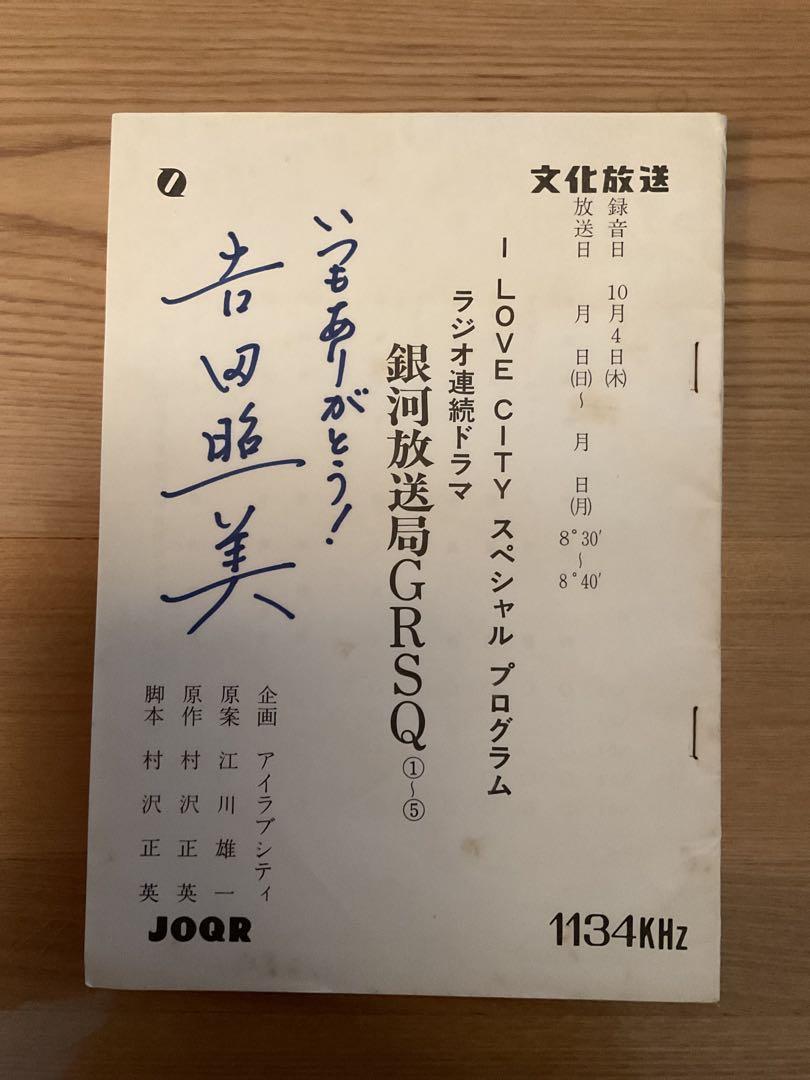 文化放送
録音日 10月4日(木)
放送日 月 日(日)〜 月 日(月) 8°30′〜8°40′
I LOVE CITY スペシャル プログラム
ラジオ連続ドラマ
銀河放送局GRSQ①〜⑤
いつもありがとう!
吉田照美
企画 アイラブシティ
原案 江川雄一
原作 村沢正英
脚本 村沢正英
JOQR
1134KHz